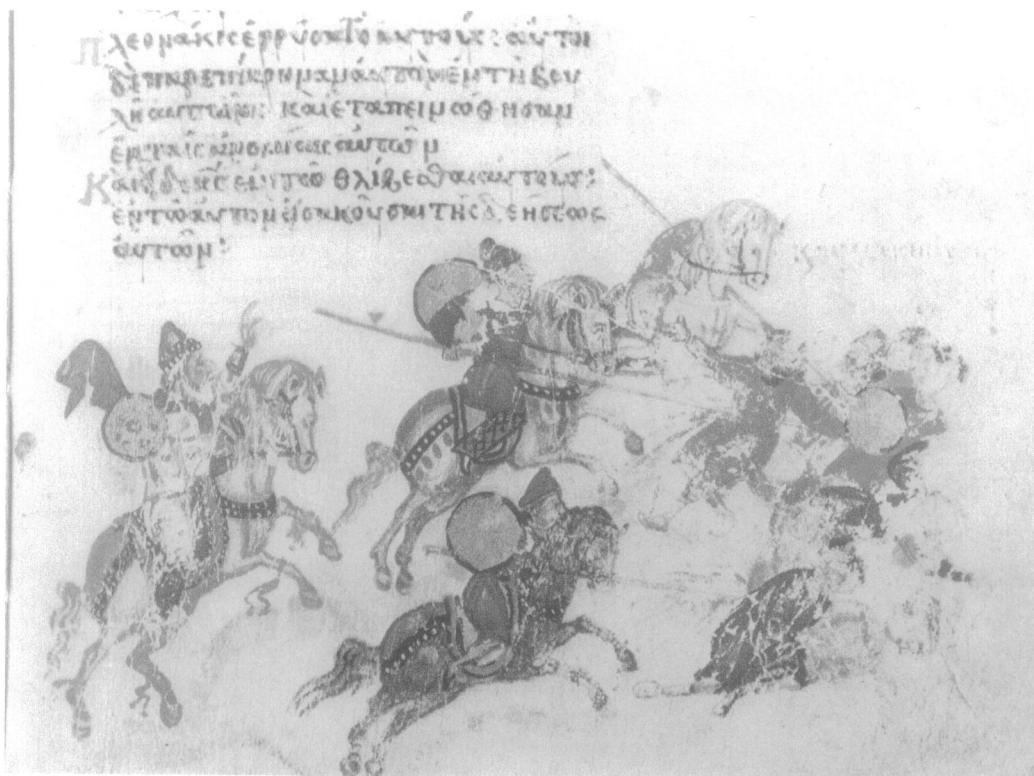 Πλεονάκις ἐρρύσατο αὐτούς: αὐτοὶ
δὲ παρεπίκραναν αὐτὸν ἐν τῆ βου
λῆ αὐτῶν: καὶ ἐταπεινώθησαν
ἐν ταῖς ἀνομίαις αὐτῶν
Καὶ εἶδε κς ἐν τῶ θλίβεσθαι αὐτούς:
ἐν τῶ αὐτὸν εἰσακοῦσαι τῆς δεήσεως
αὐτῶν: